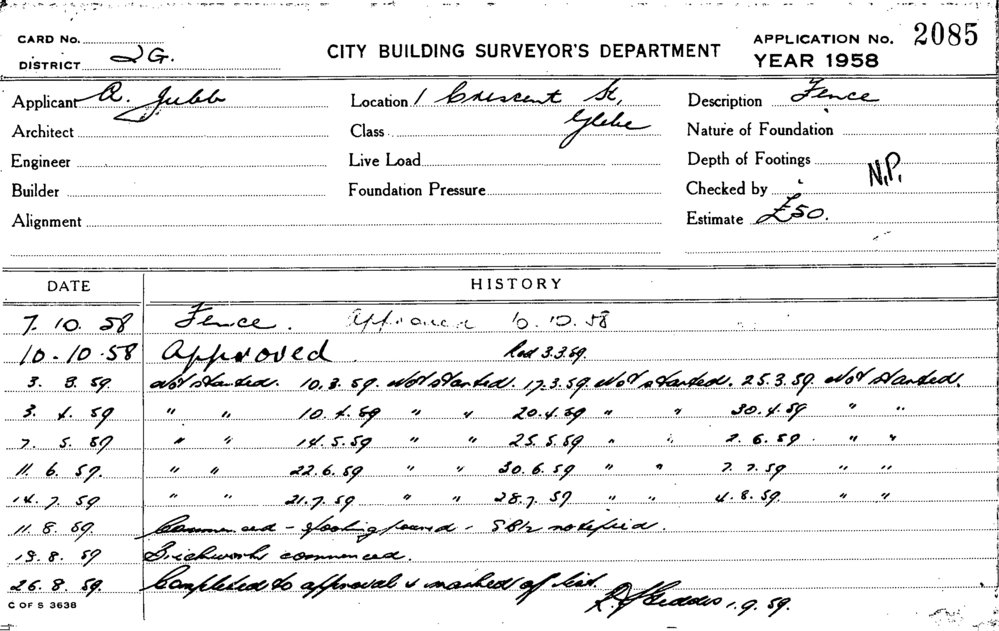 CARD No.
DISTRICT 2G.
CITY BUILDING SURVEYOR'S DEPARTMENT
APPLICATION No. 2085
YEAR 1958
Applicant A. Jubb
Location 1 Crescent St, Glebe
Description Fence
Architect
Class
Nature of Foundation
Engineer
Live Load
Depth of Footings
Builder
Foundation Pressure
Checked by N.P.
Alignment
Estimate £50.
DATE HISTORY
7. 10. 58 Fence. Approved 10. 10. 58
10. 10. 58 Approved 3.3.59.
3. 3. 59 Not started. 10.3.59. Not started. 17.3.59 Not started. 25.3.59 Not started.
3. 4. 59 " " 10.4.59 " " 20.4.59 " " 30.4.59 " "
7. 5. 59 " " 14.5.59 " " 25.5.59 " " 2.6.59. " "
11. 6. 59. " " 22.6.59 " " 30.6.59 " " 7.7.59 " "
14. 7. 59 " " 21.7.59 " " 28.7.59 " " 4.8.59 " "
11. 8. 59 Commenced - footing poured - notified.
19. 8. 59 Brickwork commenced.
26. 8. 59. Completed to approval & marked off list.
Geddes 1.9.59.
C OF S 3638